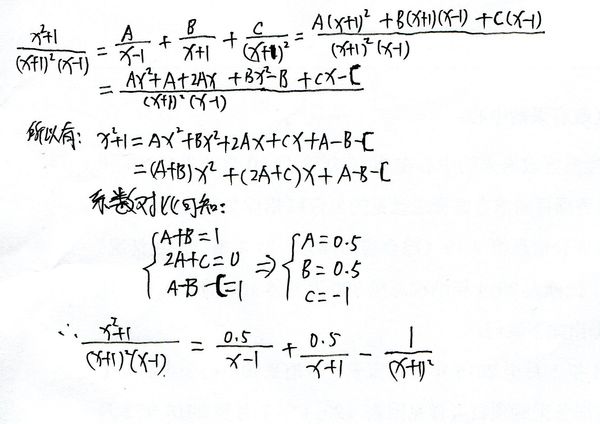 x²+1/(x+1)²(x-1) = A/x-1 + B/x+1 + C/(x+1)² = A(x+1)² + B(x+1)(x-1) + C(x-1)/(x+1)²(x-1)
= Ax²+A+2Ax+Bx²-B+Cx-C/(x+1)²(x-1)
所以有: x²+1=Ax²+Bx²+2Ax+Cx+A-B-C
=(A+B)x²+(2A+C)x+A-B-C
系数对比可知:
{A+B=1 ⇒ {A=0.5
2A+C=0 B=0.5
A-B-C=1 C=-1
∴ x²+1/(x+1)²(x-1) = 0.5/x-1 + 0.5/x+1 - 1/(x+1)²